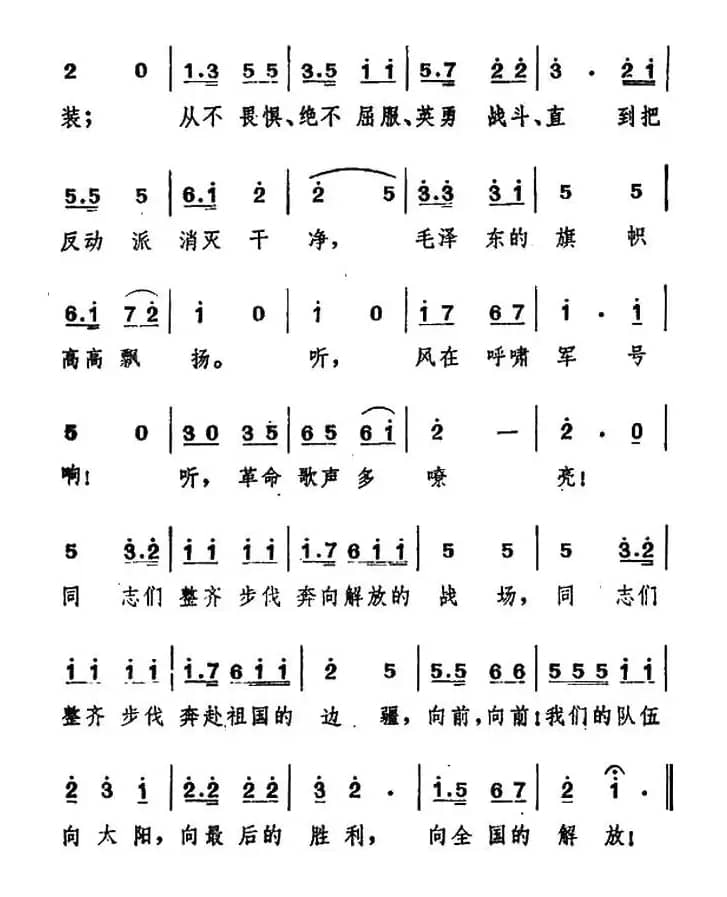 2 0 | 1.3 5 5 | 3.5 i i | 5.7 2 2 | 3 . 2 i |
装； 从不 畏惧、绝不 屈服、英勇 战斗、直 到把
5.5 5 | 6.i 2 | 2 5 | 3.3 3 i | 5 5 |
反动 派 消灭 干 净， 毛泽 东的 旗 帜
6.i 7 2 | i 0 | i 0 | i 7 6 7 | i . i |
高高 飘 扬。 听， 风在 呼啸 军 号
5 0 | 3 0 3 5 | 6 5 6 i | 2 — | 2 . 0 |
响！ 听，革命 歌声 多 嘹 亮！
5 3.2 | i i i i | i.7 6 i i | 5 5 | 5 3.2 |
同 志们 整齐 步伐 奔向解放的 战 场，同 志们
i i i i | i.7 6 i i | 2 5 | 5.5 6 6 | 5 5 5 i i |
整齐 步伐 奔赴祖国的 边 疆，向前，向前！我们的队伍
2 3 i | 2.2 2 2 | 3 2 . | i.5 6 7 | 2 i . ‖
向 太 阳，向最 后的 胜 利， 向全 国的 解 放！